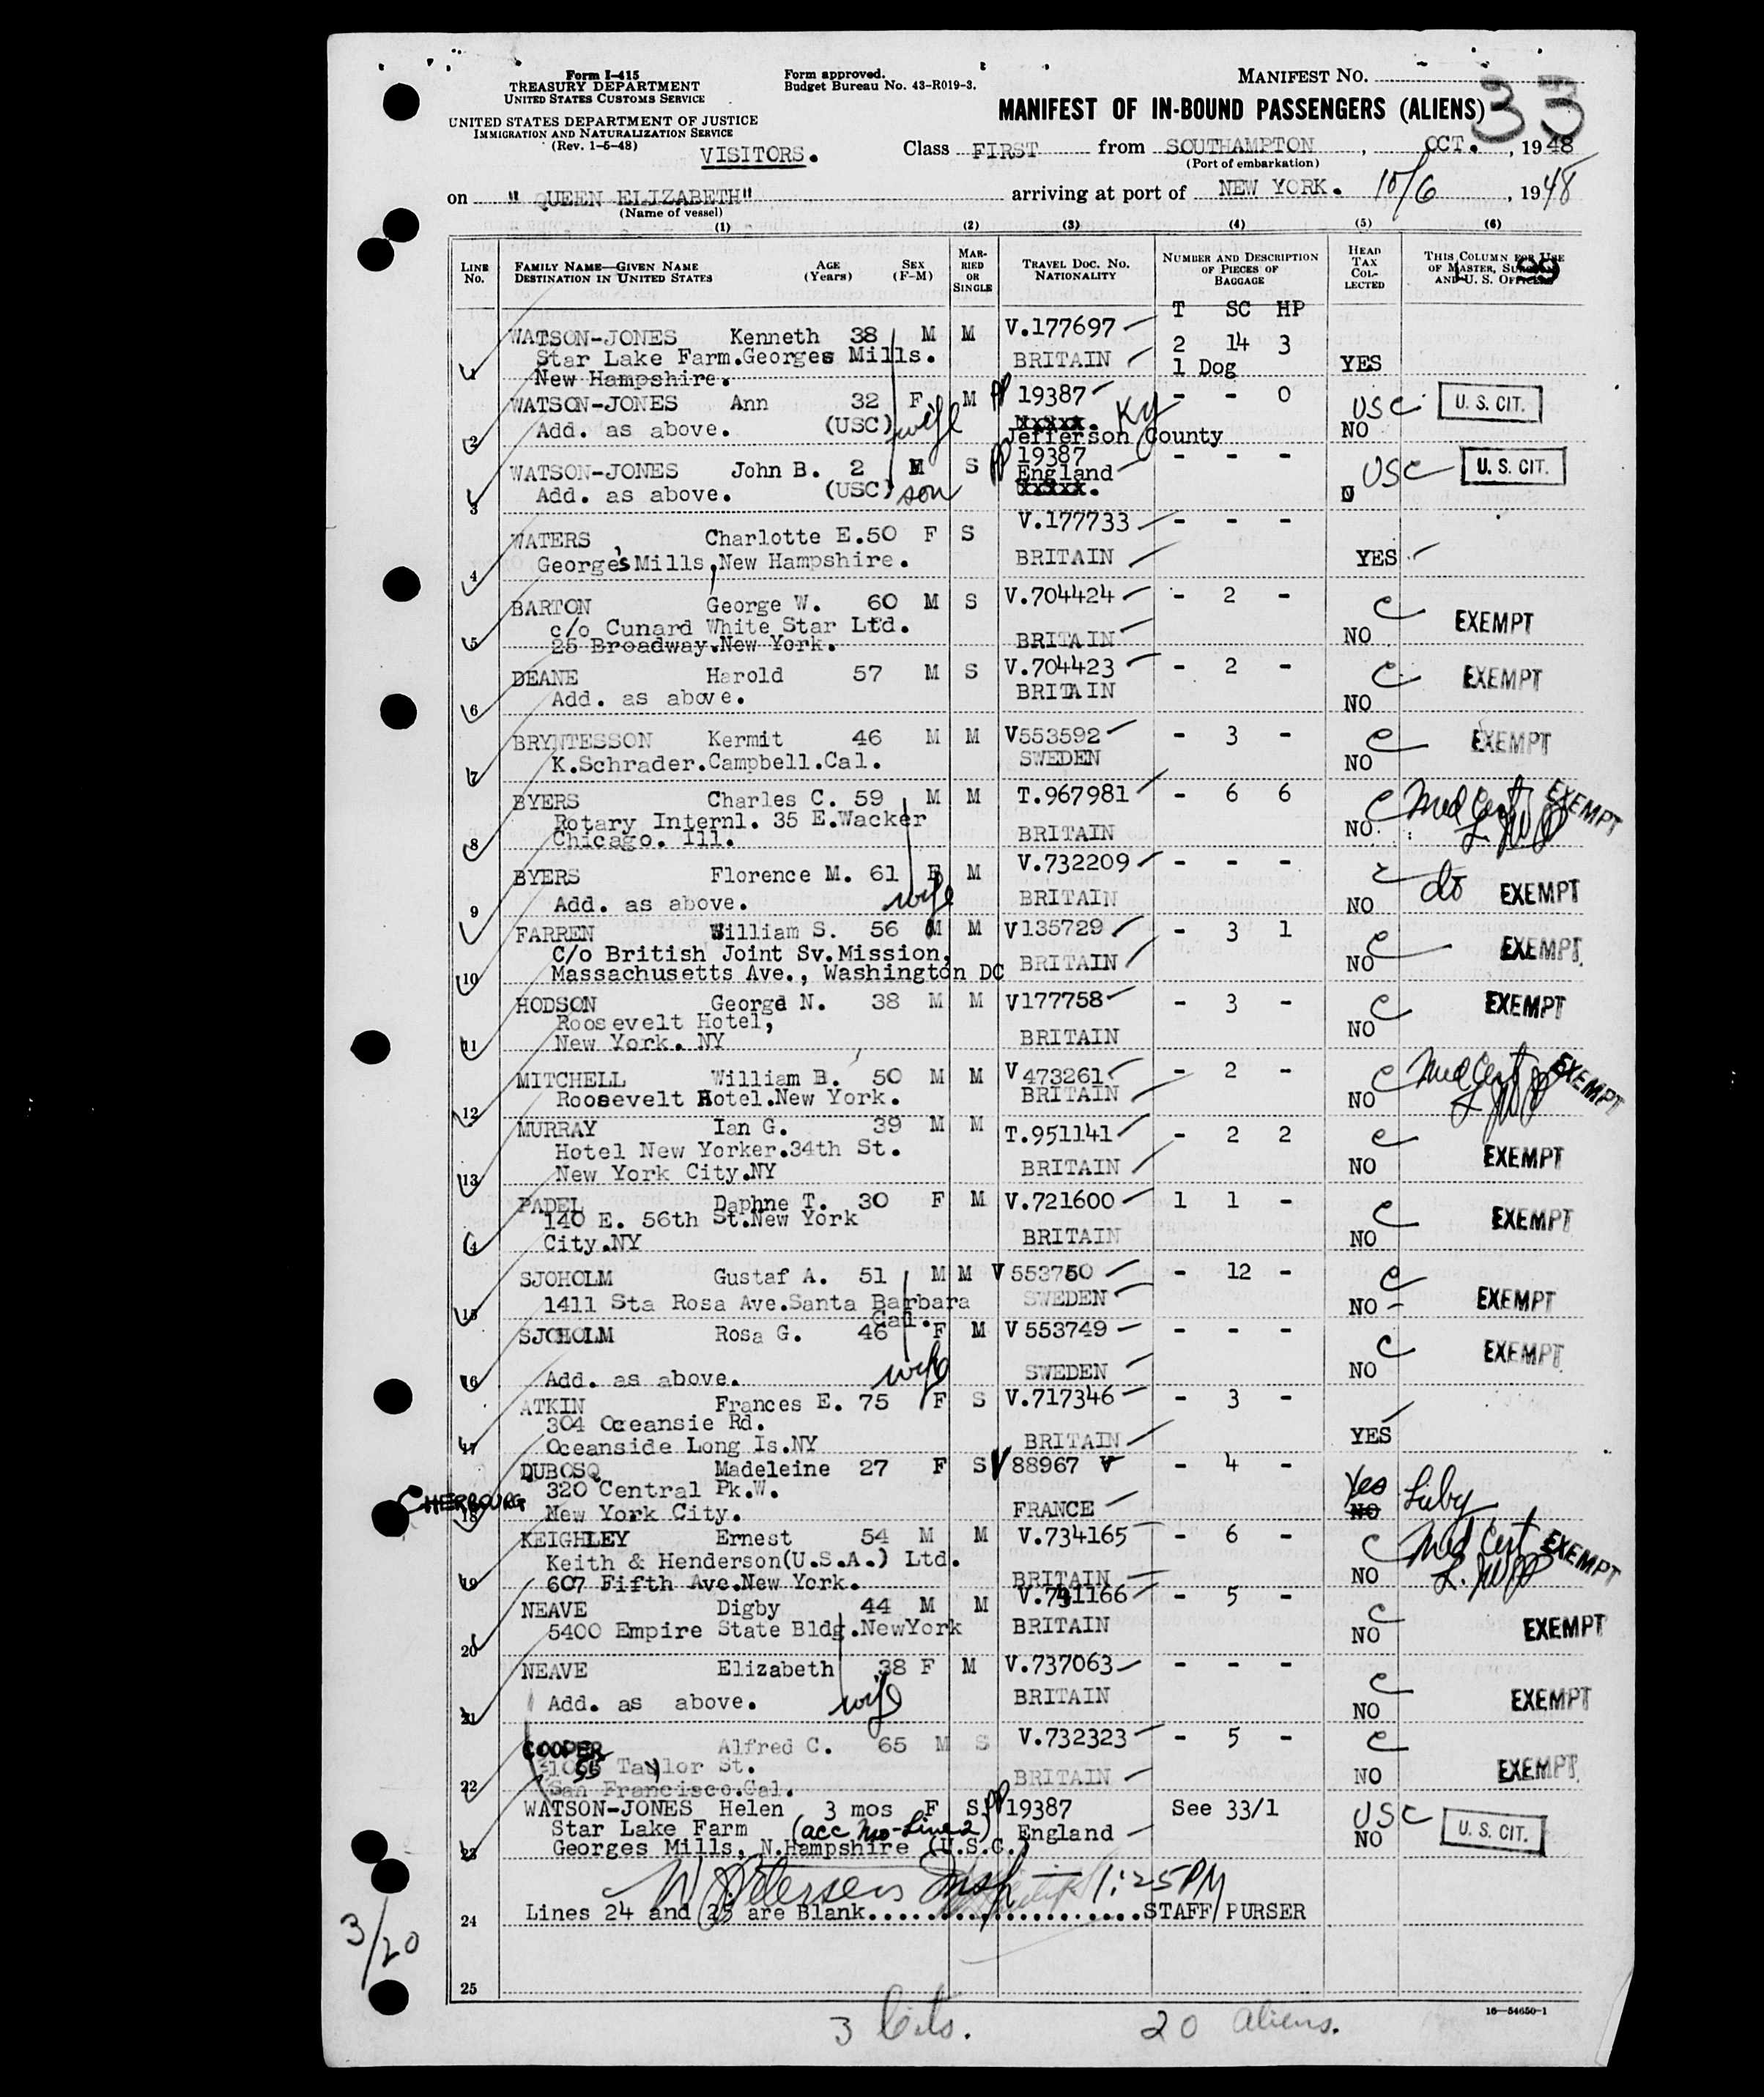 Form I-415
TREASURY DEPARTMENT
UNITED STATES CUSTOMS SERVICE
UNITED STATES DEPARTMENT OF JUSTICE
IMMIGRATION AND NATURALIZATION SERVICE
(Rev. 1-5-48)
Form approved.
Budget Bureau No. 43-R019-3.
MANIFEST No.
33
MANIFEST OF IN-BOUND PASSENGERS (ALIENS)
VISITORS.
Class FIRST from SOUTHAMPTON, OCT., 1948
(Port of embarkation)
on "QUEEN ELIZABETH" arriving at port of NEW YORK. 10/6, 1948
(Name of vessel)
(1) (2) (3) (4) (5) (6)
LINE No. FAMILY NAME—GIVEN NAME DESTINATION IN UNITED STATES AGE (Years) SEX (F-M) MARRIED OR SINGLE TRAVEL DOC. NO. NATIONALITY NUMBER AND DESCRIPTION OF PIECES OF BAGGAGE HEAD TAX COLLECTED THIS COLUMN FOR USE OF MASTER, SURGEON AND U. S. OFFICERS
T SC HP
WATSON-JONES Kenneth 38 M M V.177697 2 14 3
Star Lake Farm.Georges Mills. BRITAIN 1 Dog YES
1 New Hampshire.
WATSON-JONES Ann 32 F M PP 19387 - - 0 USC U. S. CIT.
2 Add. as above. (USC) wife Jefferson County Ky NO
WATSON-JONES John B. 2 M S PP 19387 - - - USC U. S. CIT.
3 Add. as above. (USC) son England
WATERS, Charlotte E. 50 F S V.177733 - - -
4 George's Mills, New Hampshire. BRITAIN YES
BARTON George W. 60 M S V.704424 - 2 - C
c/o Cunard White Star Ltd. EXEMPT
5 25 Broadway.New York. BRITAIN NO
DEANE Harold 57 M S V.704423 - 2 - C EXEMPT
6 Add. as above. BRITAIN NO
BRYNTESSON Kermit 46 M M V553592 - 3 - C EXEMPT
7 K.Schrader.Campbell.Cal. SWEDEN NO
BYERS Charles C. 59 M M T.967981 - 6 6 C Med Cert EXEMPT
Rotary Internl. 35 E.Wacker
8 Chicago. Ill. BRITAIN NO.
BYERS Florence M. 61 F M V.732209 - - - C do EXEMPT
9 Add. as above. wife BRITAIN NO
FARREN William S. 56 M M V135729 - 3 1 C EXEMPT
C/o British Joint Sv.Mission, BRITAIN NO
10 Massachusetts Ave., Washington DC
HODSON George N. 38 M M V177758 - 3 - C EXEMPT
Roosevelt Hotel,
11 New York. NY BRITAIN NO
MITCHELL William B. 50 M M V 473261 - 2 - C Med Cert EXEMPT
12 Roosevelt Hotel.New York. BRITAIN NO
MURRAY Ian G. 39 M M T.951141 - 2 2 C
Hotel New Yorker.34th St. EXEMPT
13 New York City.NY BRITAIN NO
PADEL Daphne T. 30 F M V.721600 1 1 - C
140 E. 56th St.New York EXEMPT
14 City.NY BRITAIN NO
SJOHOLM Gustaf A. 51 M M V 553750 - 12 - C
15 1411 Sta Rosa Ave.Santa Barbara Cal. SWEDEN NO - EXEMPT
SJOHOLM Rosa G. 46 F M V 553749 - - - C EXEMPT
16 Add. as above. wife SWEDEN NO
ATKIN Frances E. 75 F S V.717346 - 3 -
304 Oceansie Rd.
17 Oceanside Long Is.NY BRITAIN YES
DUBOSQ Madeleine 27 F S V 88967 V - 4 - Yes
320 Central Pk.W.
CHERBOURG
18 New York City. FRANCE NO
KEIGHLEY Ernest 54 M M V.734165 - 6 - C Med Cert EXEMPT
Keith & Henderson(U.S.A.) Ltd.
19 607 Fifth Ave.New York. BRITAIN NO
NEAVE Digby 44 M M V.741166 - 5 - C
20 5400 Empire State Bldg.NewYork BRITAIN NO EXEMPT
NEAVE Elizabeth 38 F M V.737063 - - - C
21 Add. as above. wife BRITAIN NO EXEMPT
COOPER Alfred C. 65 M S V.732323 - 5 - C
1055 Taylor St. EXEMPT
22 San Francisco.Cal. BRITAIN NO
WATSON-JONES Helen 3 mos F S PP 19387 See 33/1 USC U. S. CIT.
Star Lake Farm (acc Mo-Line 2) England NO
23 Georges Mills, N.Hampshire (U.S.C.)
W Petersen Insp — 1:25PM
24 Lines 24 and 25 are Blank....................STAFF/PURSER
3/20
25
16—54650-1
3 Cits. 20 aliens.